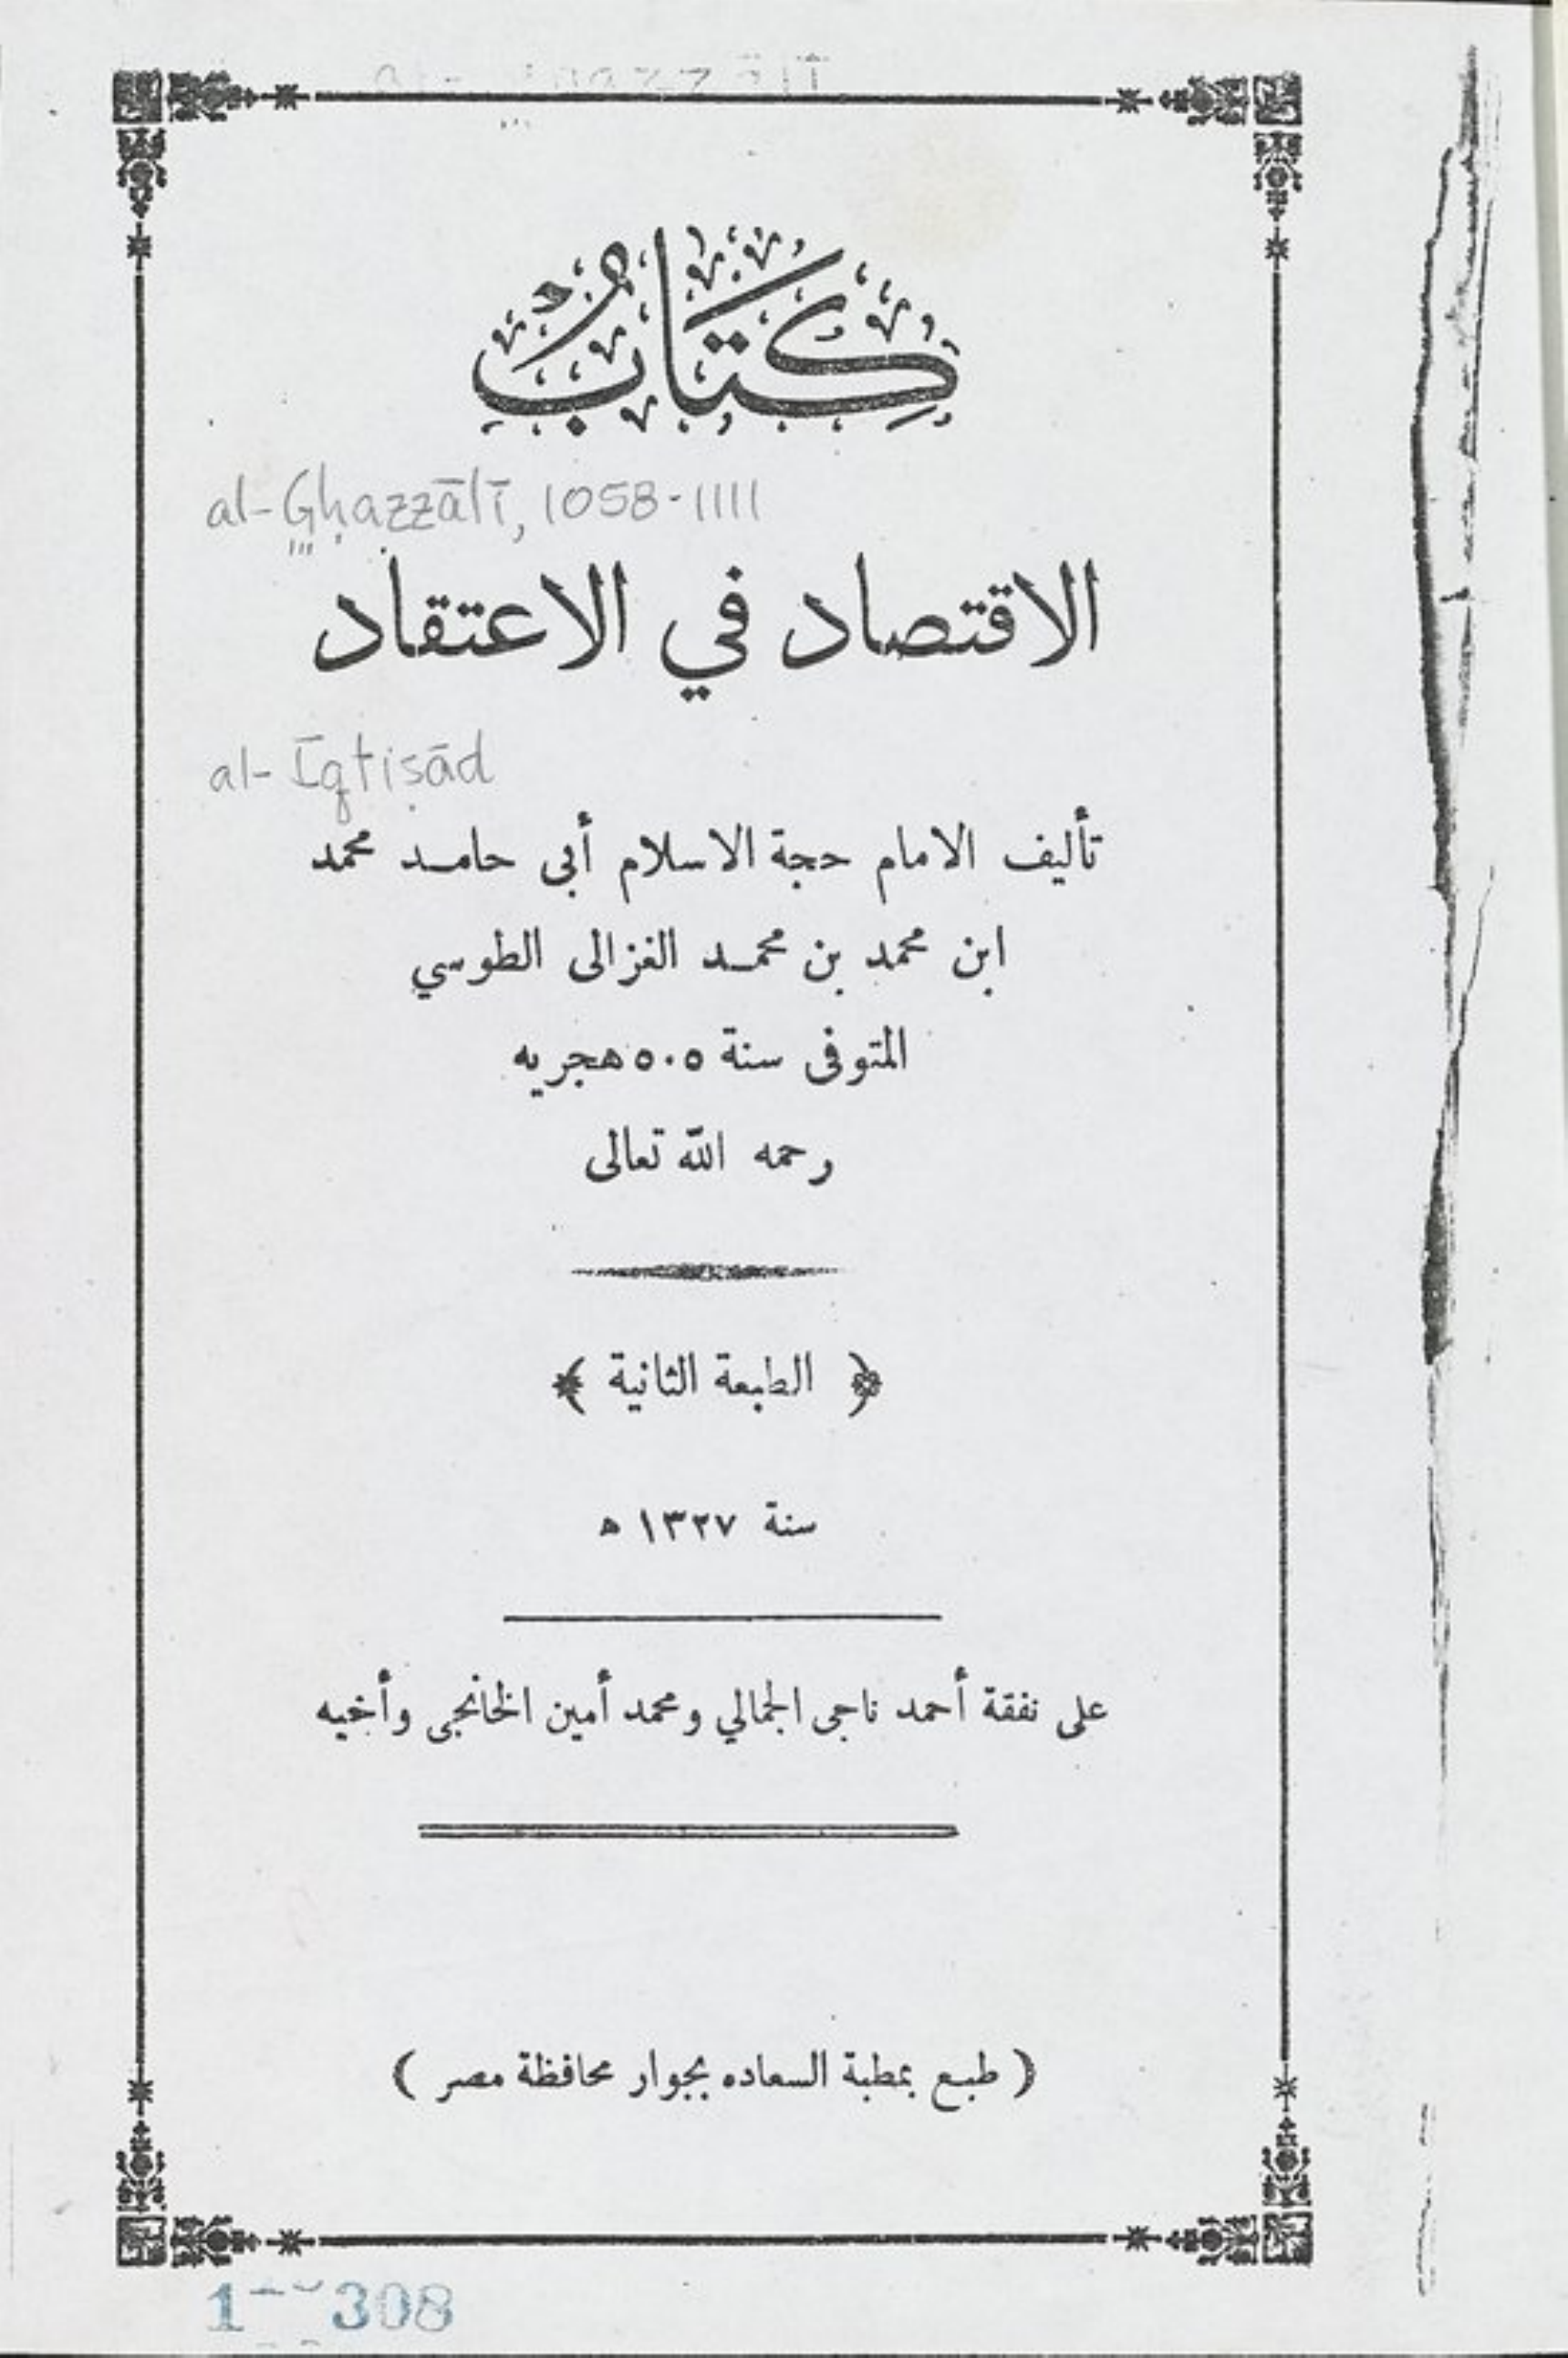 كِتَابُ
al-Ghazzālī, 1058-1111
الاقتصاد في الاعتقاد
al-Iqtiṣād
تأليف الامام حجة الاسلام أبى حامد محمد
ابن محمد بن محمد الغزالى الطوسي
المتوفى سنة ٥٠٥ هجريه
رحمه الله تعالى
﴿ الطبعة الثانية ﴾
سنة ١٣٢٧ ه
على نفقة أحمد ناجى الجمالي ومحمد أمين الخانجى وأخيه
( طبع بمطبة السعاده بجوار محافظة مصر )
308